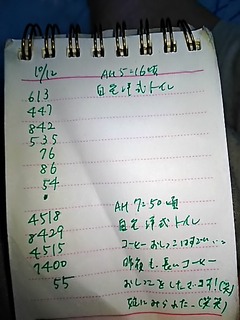 10/12 AM 5:16頃
613 自宅洋式トイレ
447
842
535
76
86
54
•
4518 AM 7:50頃
8429 自宅洋式トイレ
4515 コーヒーおしっこはすごい…
7400 昨夜も長いコーヒー
55 おしっこをしたでます!(笑)
(笑笑)